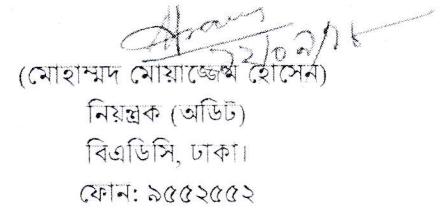 (মোহাম্মদ মোয়াজ্জেম হোসেন)
নিয়ন্ত্রক (অডিট)
বিএডিসি, ঢাকা।
ফোন: ৯৫৫২৫৫২